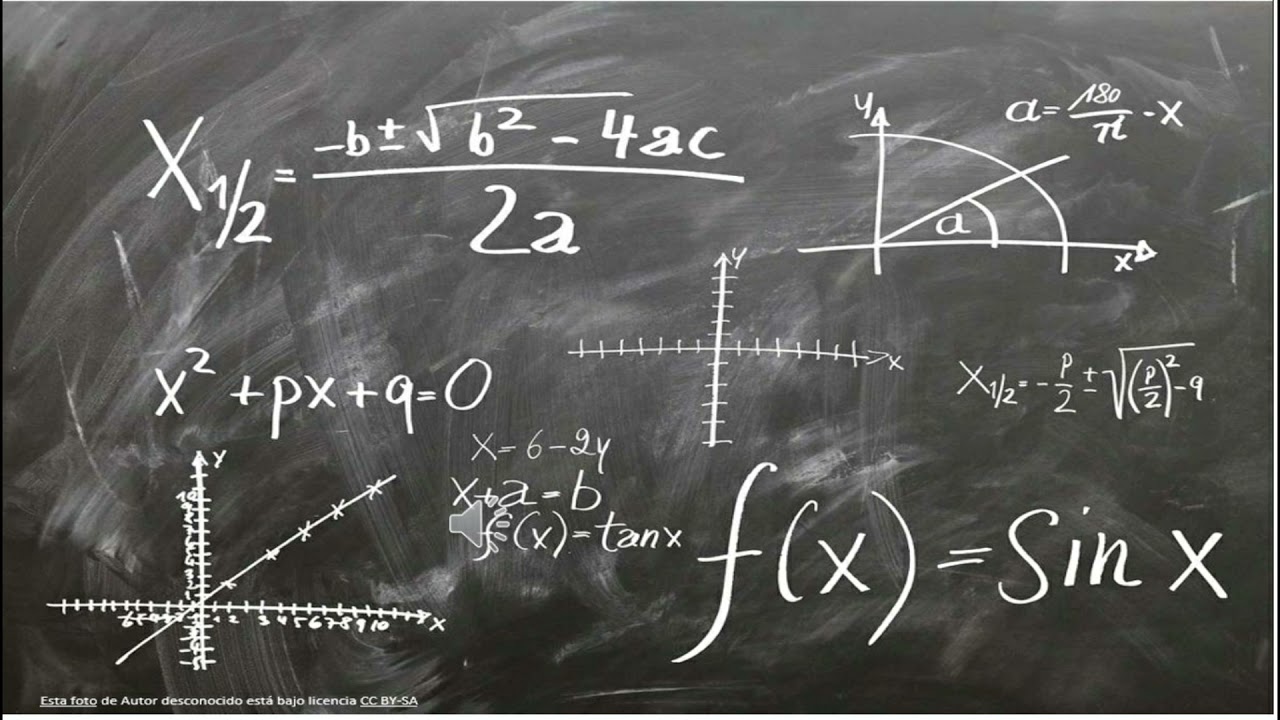 X1/2 = -b ± √b² - 4ac / 2a
y
a = 180/π - x
a
x
y
x
x² + px + q = 0
X1/2 = -p/2 ± √(p/2)² - q
x = 6 - 2y
x + a = b
f(x) = tan x
f(x) = Sin x
y
10
1 2 3 4 5 6 7 8 9 10
x
Esta foto de Autor desconocido está bajo licencia CC BY-SA